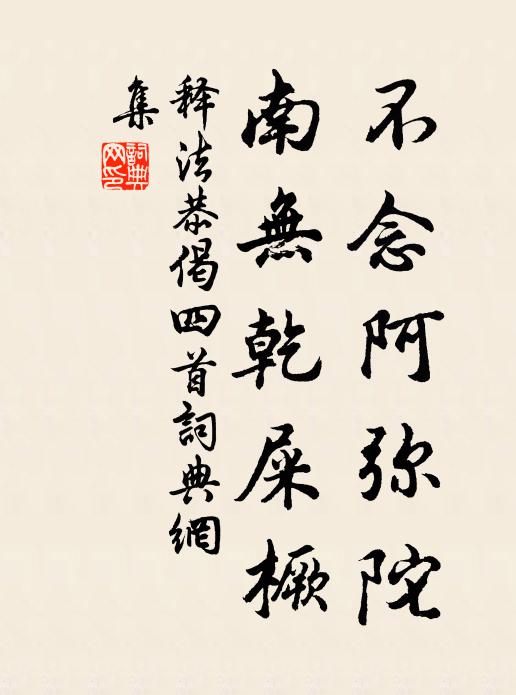 不念阿弥陀
南無乾屎橛
释法恭偈四首詞典網
集
詞典網印